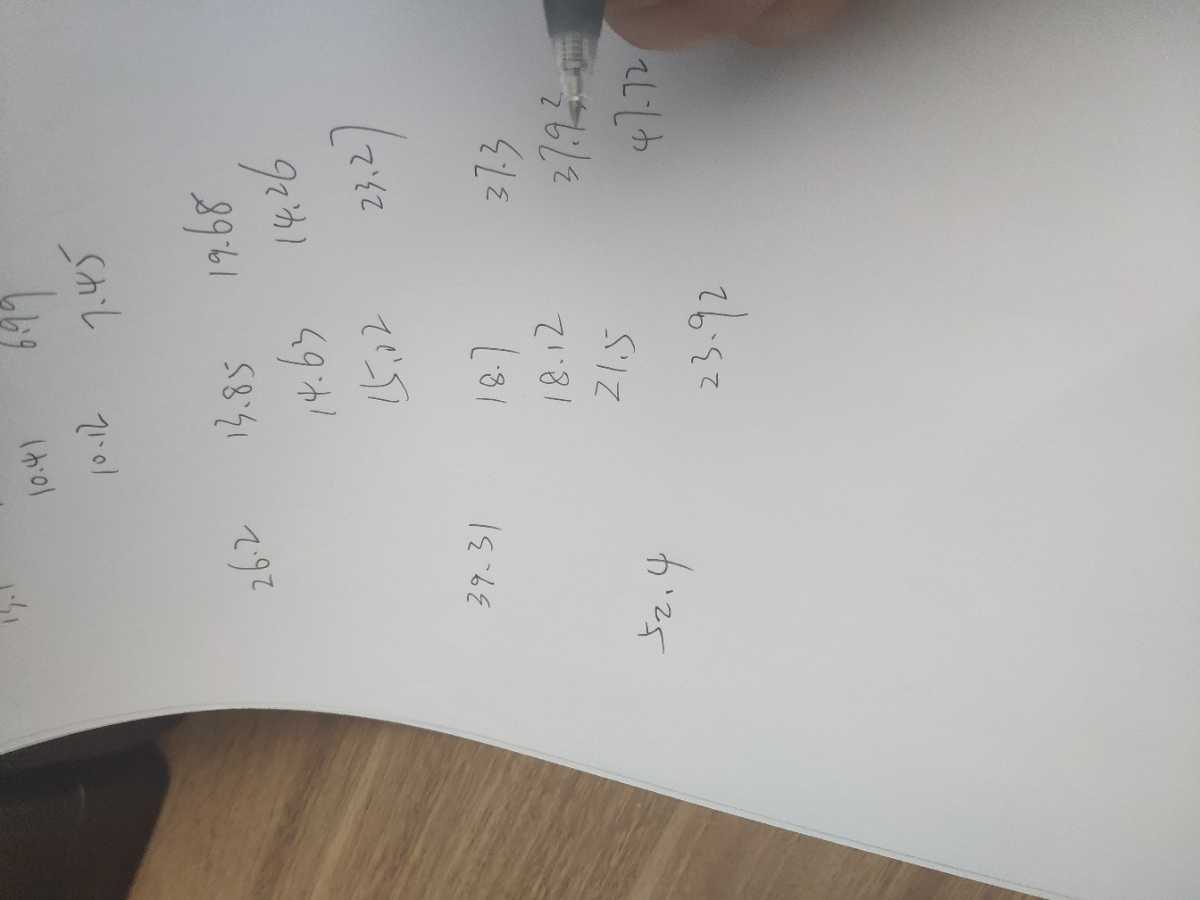 10.41 6.99
10.12 7.45
26.2 13.85 19.68
14.63 14.26
15.02 23.27
39.31 18.7 37.3
18.12 37.92
21.5 47.72
52.4 23.92